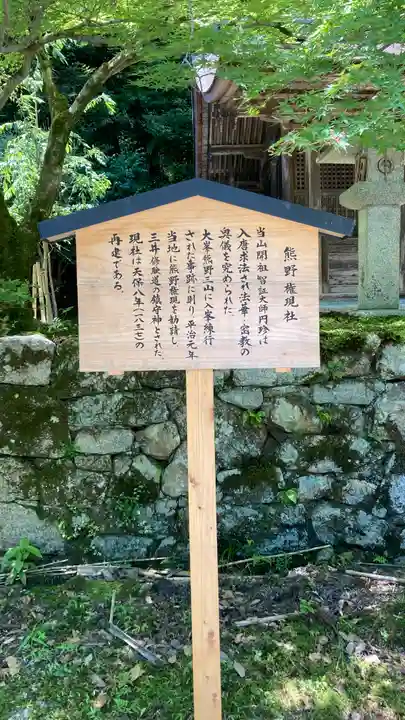 熊野権現社
当山開祖智証大師円珍は
入唐求法され法華・密教の
奥儀を究められた。
大峯熊野三山に入峯練行
された事跡に則り、平治元年
当地に熊野権現を勧請し
三井修験道の鎮守神とされた。
現社は天保八年(一八三七)の
再建である。